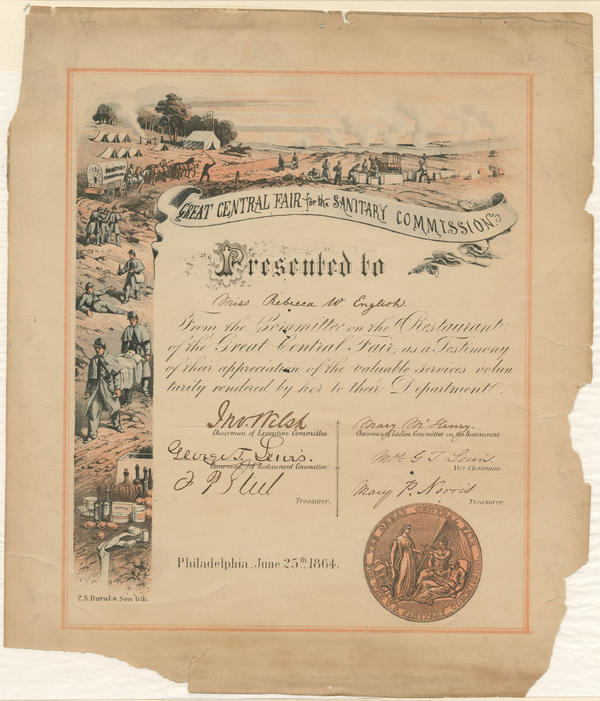 SANITARY
GREAT CENTRAL FAIR for the SANITARY COMMISSION
Presented to
Miss Rebecca W English
From the Committee on the Restaurant
of the Great Central Fair, as a Testimony
of their appreciation of the valuable services volun
tarily rendered by her to their Department.
Jno. Welsh
Chairman of Executive Committee.
George T. Lewis.
Chairman of Restaurant Committee
Treasurer.
Mary McHenry.
Chairman of Ladies Committee on the Restaurant
Mrs G T Lewis
Vice Chairman.
Mary P. Norris
Treasurer.
Philadelphia, June 25th 1864.
GREAT CENTRAL FAIR
P.S. Duval & Son lith.